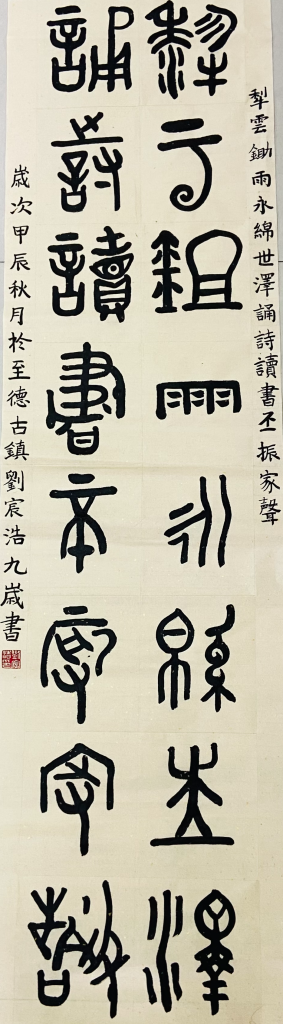 犁雲鋤雨永綿世澤誦詩讀書丕振家聲
犁云鉏雨永緜世澤
誦詩讀書丕振家聲
歲次甲辰秋月於至德古鎮劉宸浩九歲書